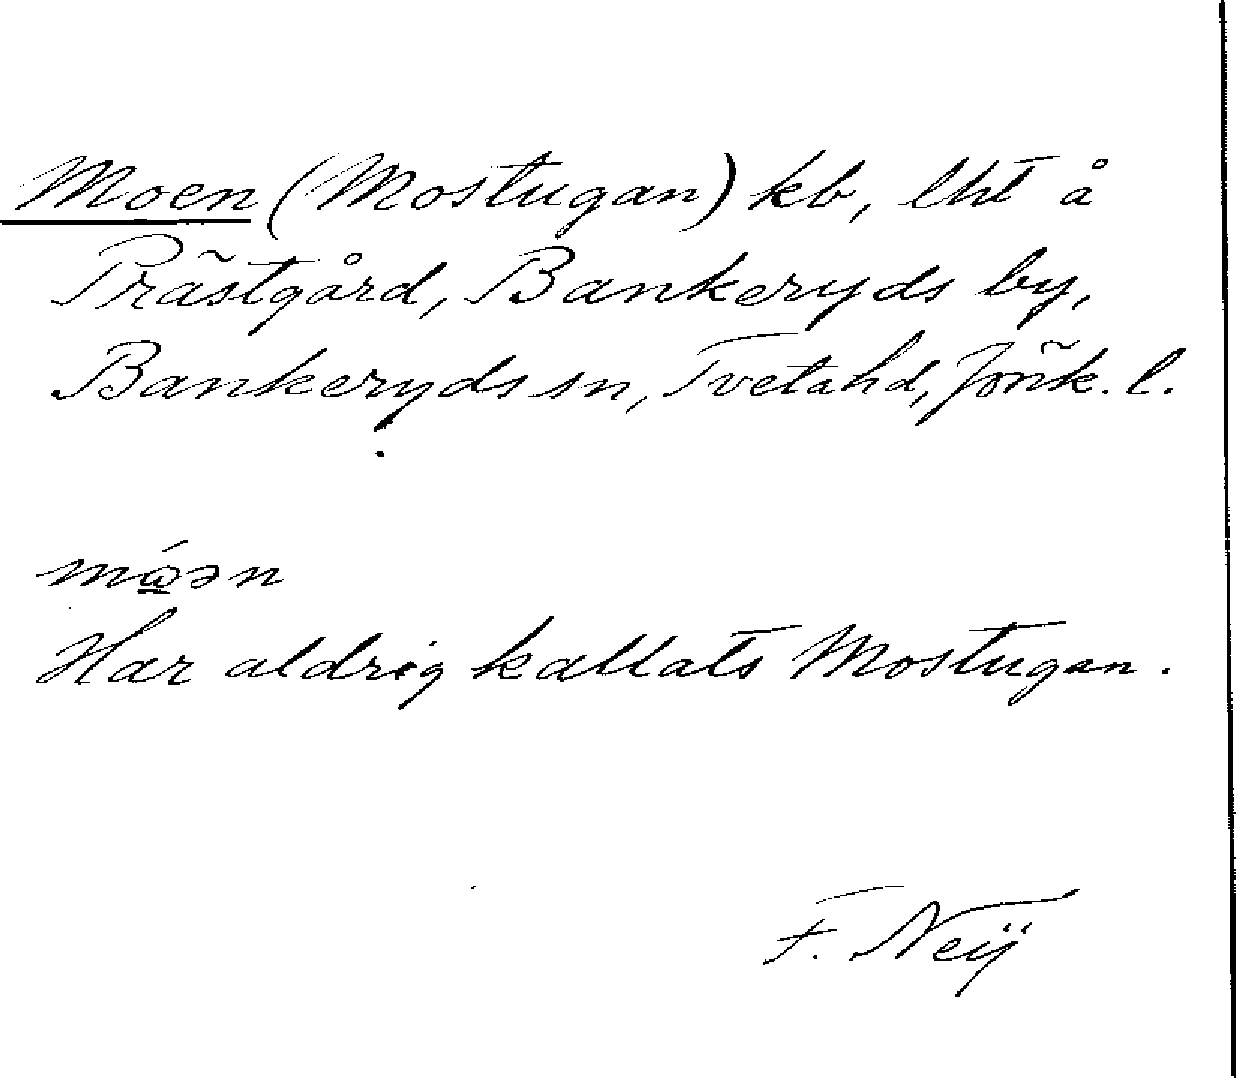 Moen (Mostugan) kb, lht å
Prästgård, Bankeryds by,
Bankeryds sn, Tveta hd, Jönk. l.
mώ̲ən
Har aldrig kallats Mostugan.
F. Neij